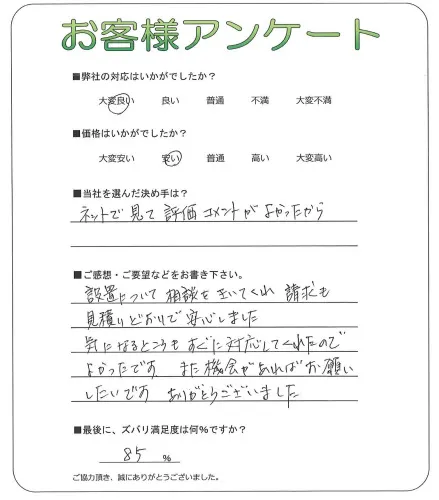 お客様アンケート
■弊社の対応はいかがでしたか？
大変良い 良い 普通 不満 大変不満
■価格はいかがでしたか？
大変安い 安い 普通 高い 大変高い
■当社を選んだ決め手は？
ネットで見て 評価 コメントが よかったから
■ご感想・ご要望などをお書き下さい。
設置について 相談を きいてくれ 請求も
見積りどおりで 安心しました
気になるところも すぐに対応してくれたので
よかったです また機会があれば お願い
したいです ありがとうございました
■最後に、ズバリ満足度は何%ですか？
85 %
ご協力頂き、誠にありがとうございました。